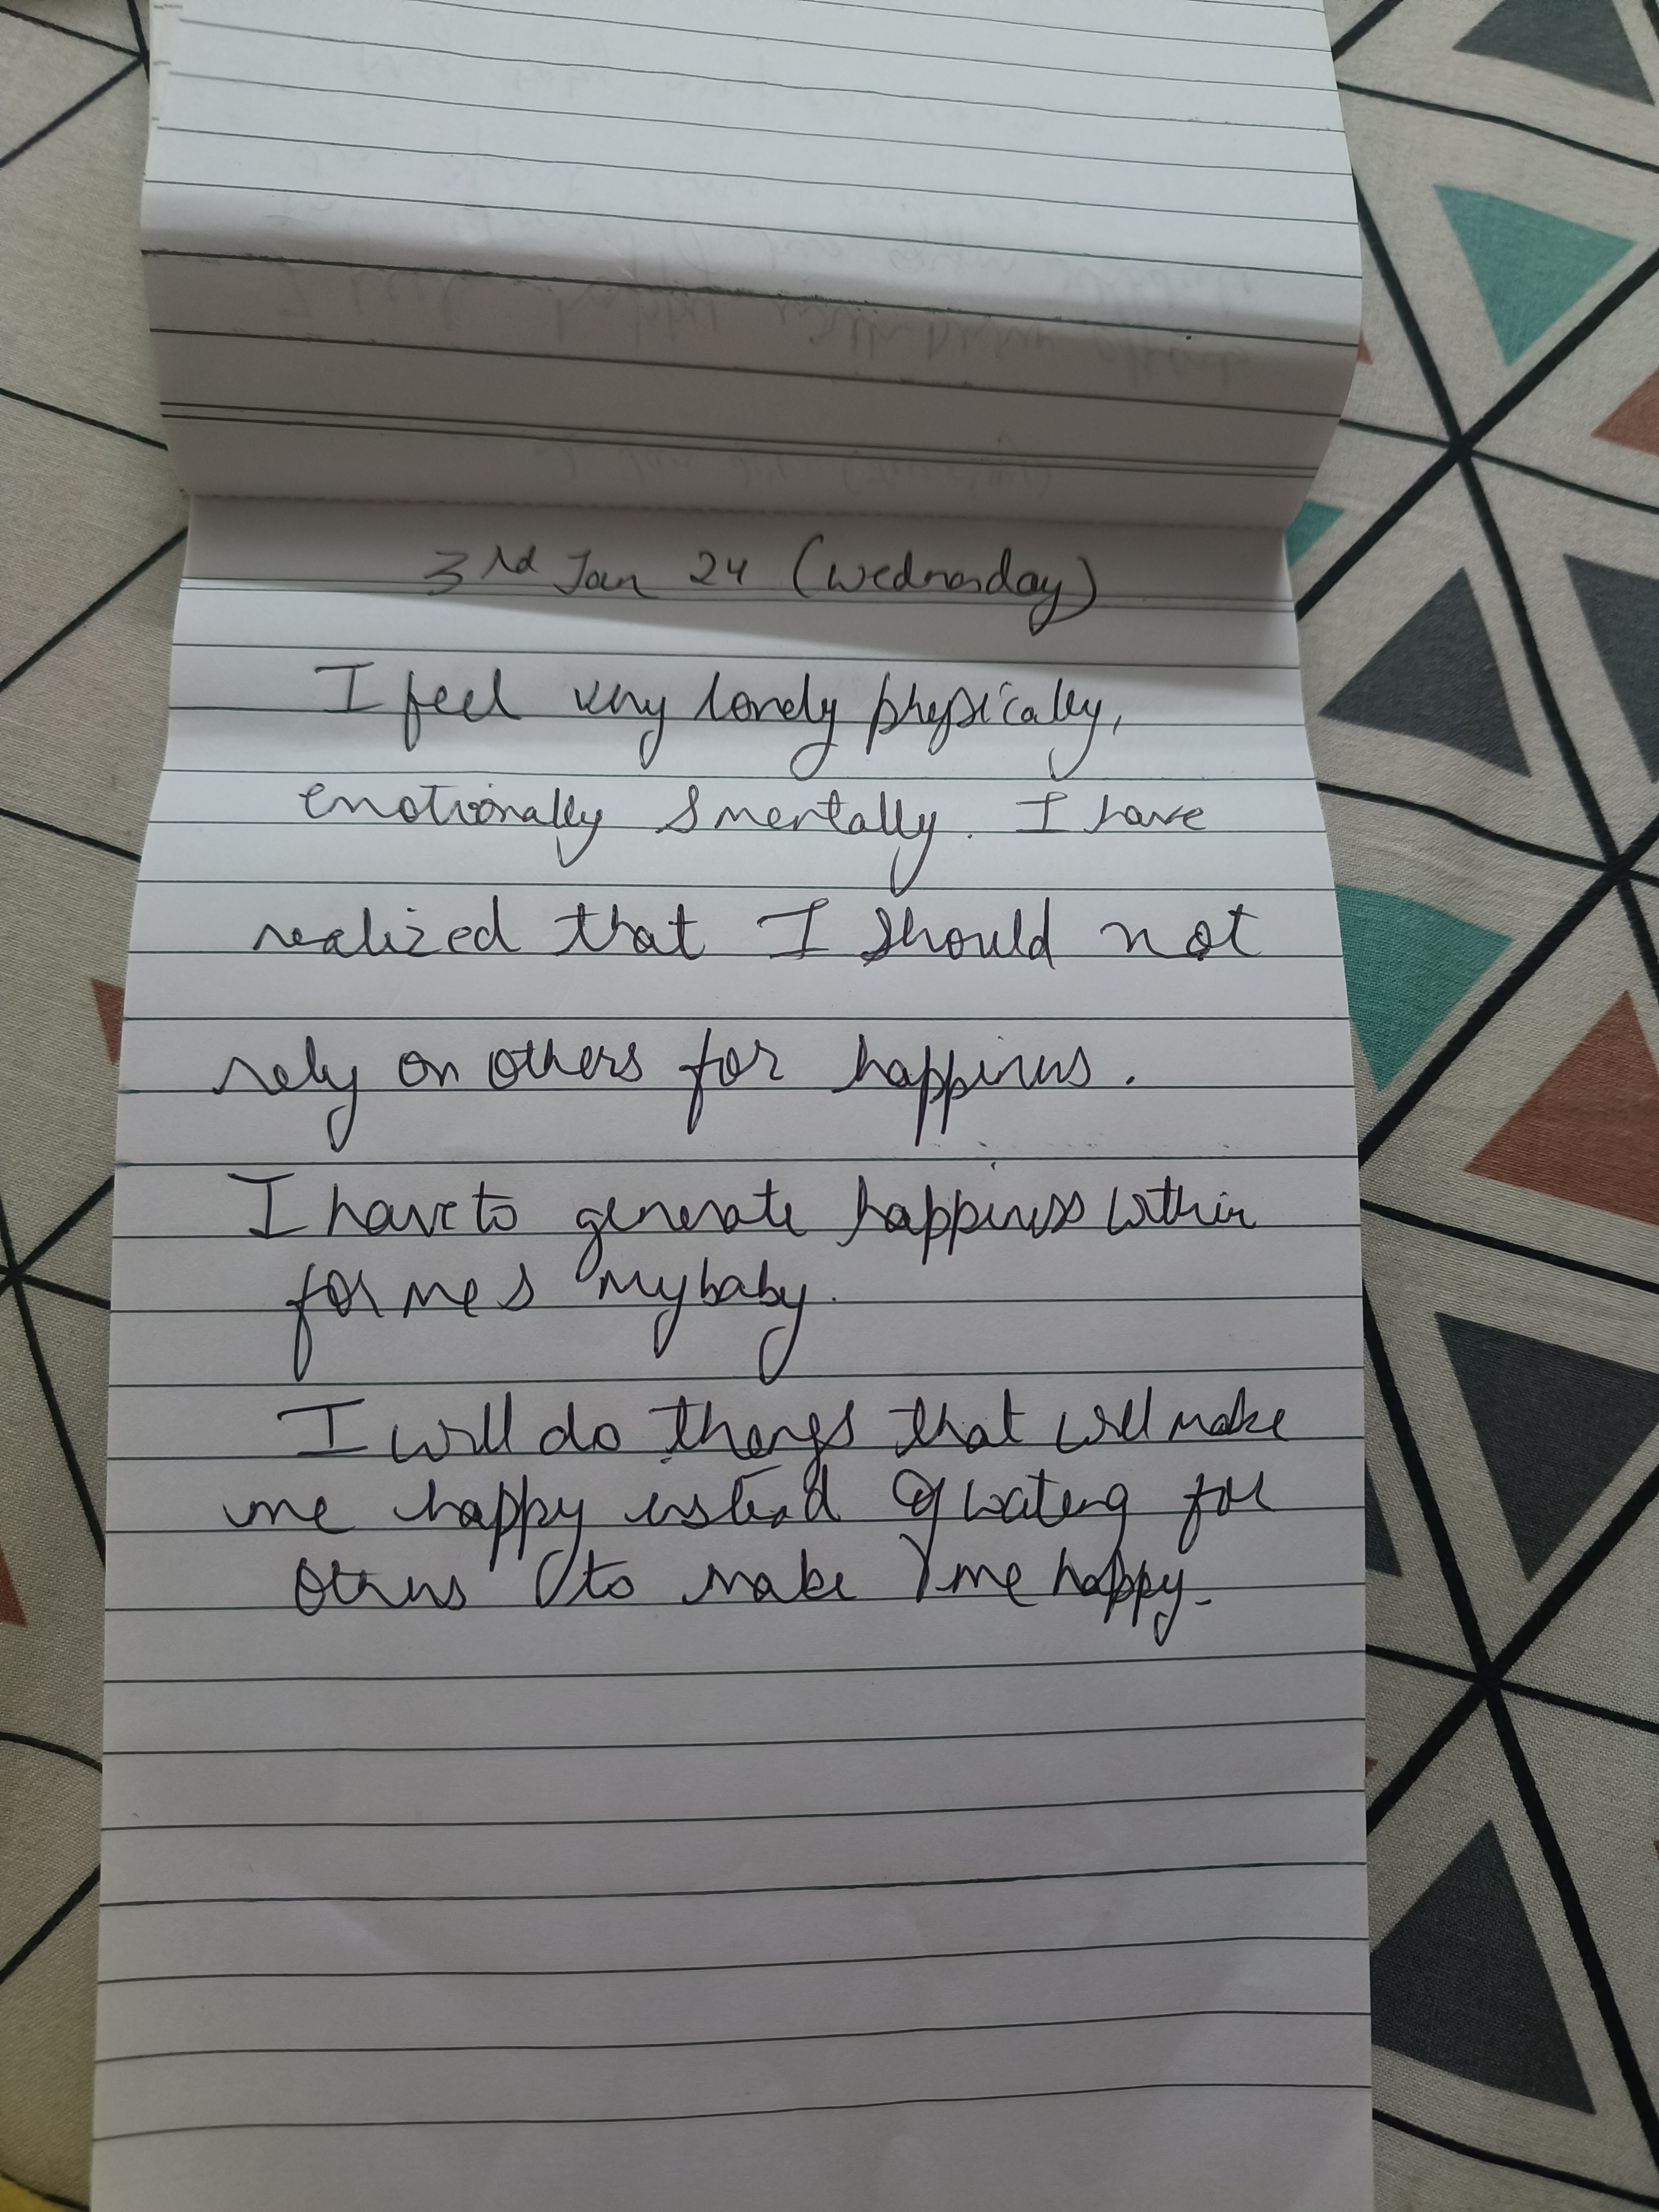 3rd Jan 24 (Wednesday)
I feel very lonely physically,
emotionally & mentally. I have
realized that I should not
rely on others for happiness.
I have to generate happiness within
for me & my baby.
I will do things that will make
me happy instead of waiting for
others to make me happy.